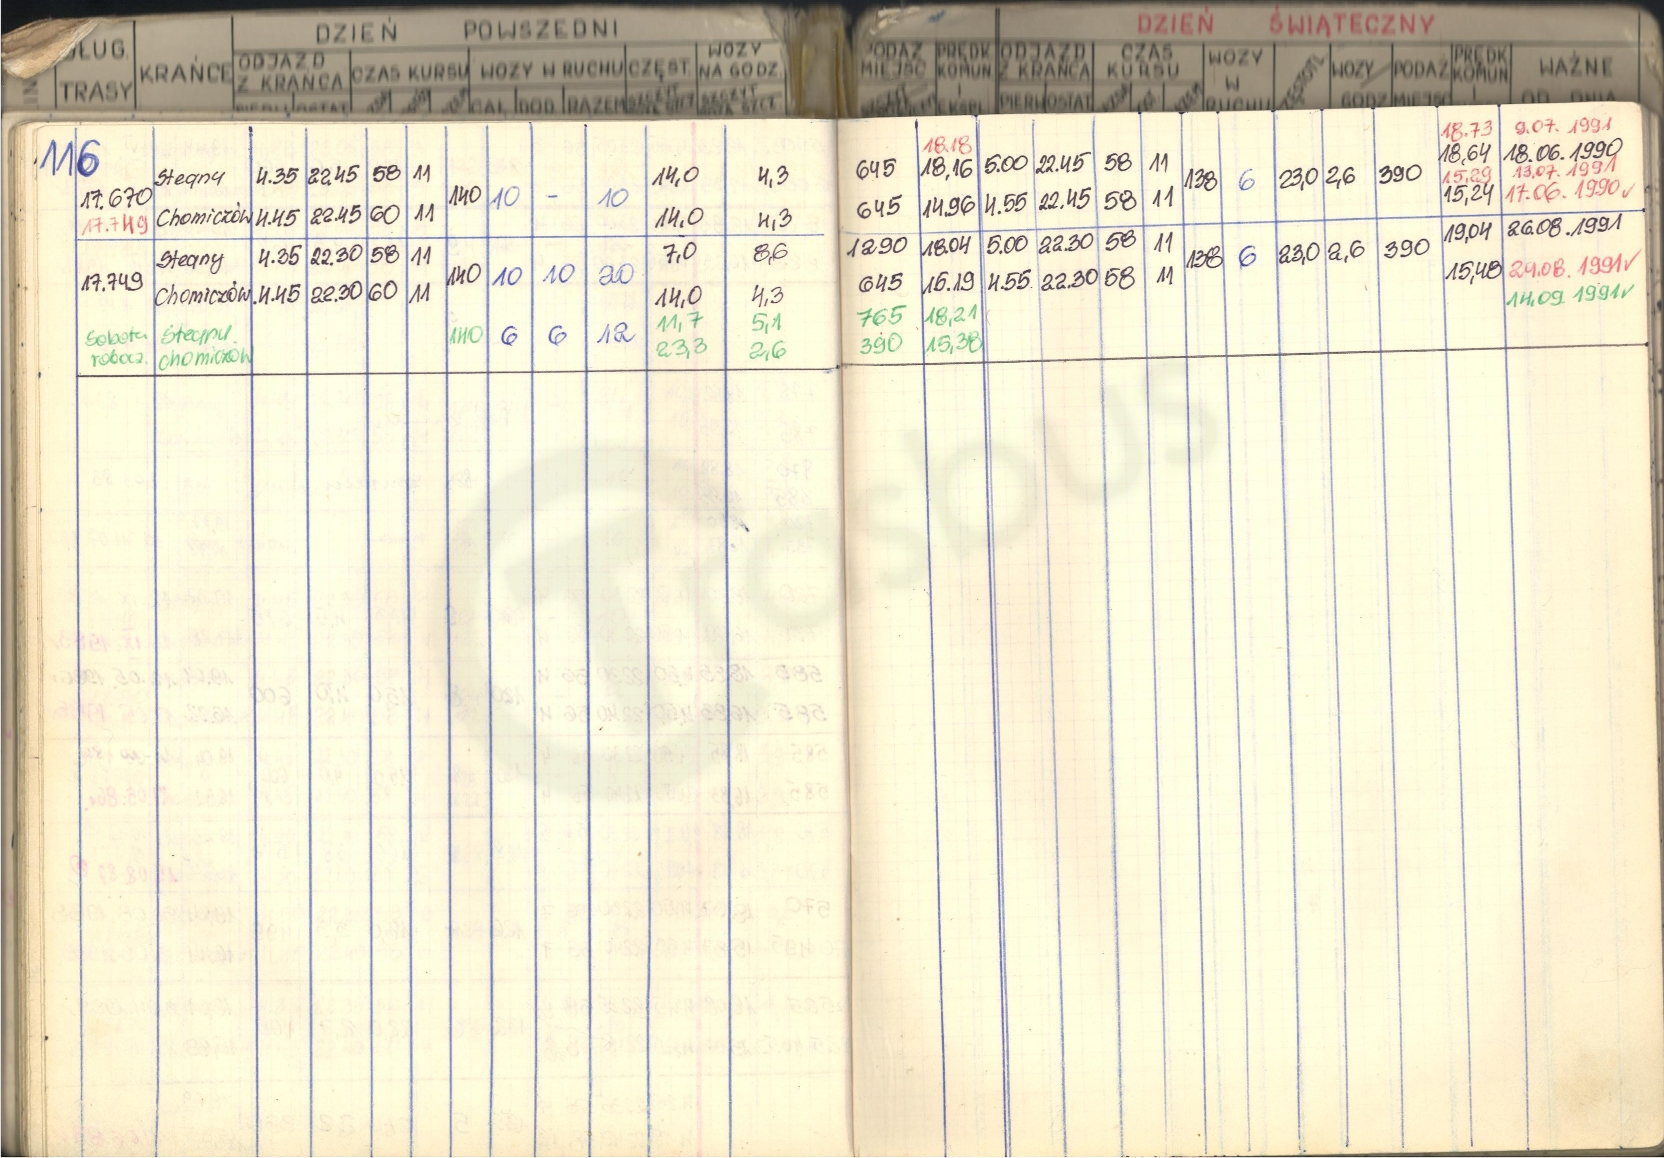 DZIEŃ POWSZEDNI DZIEŃ ŚWIĄTECZNY
DŁUG. TRASY KRAŃCE ODJAZD Z KRAŃCA CZAS KURSU WOZY W RUCHU CZĘST. WOZY NA GODZ. PODAŻ MIEJSC PRĘDK KOMUN ODJAZD Z KRAŃCA CZAS KURSU WOZY W RUCHU WOZY GODZ PODAŻ MIEJSC PRĘDK KOMUN WAŻNE OD DNIA
PIERW OSTAT CAŁ DOD RAZEM SZCZYT SZCZYT EKSPL. PIERW OSTAT
116
18.18 18.73 9.07. 1991
Stegny 4.35 22.45 58 11 14,0 4,3 645 18,16 5.00 22.45 58 11 18,64 18.06.1990
17.670 140 10 - 10 138 6 23,0 2,6 390 15,29 13.07.1991
17.749 Chomiczów 4.45 22.45 60 11 14,0 4,3 645 14.96 4.55 22.45 58 11 15,24 17.06.1990 ✓
Stegny 4.35 22.30 58 11 7,0 8,6 1290 18.04 5.00 22.30 58 11 19,04 26.08.1991
17.749 140 10 10 20 138 6 23,0 2,6 390
Chomiczów 4.45 22.30 60 11 14,0 4,3 645 16.19 4.55 22.30 58 11 15,48 24.08.1991 ✓
14.09.1991 ✓
Sobota 11,7 5,1 765 18,21
140 6 6 12
robocz. Chomiczów 23,3 2,6 390 15,38
Trasbus